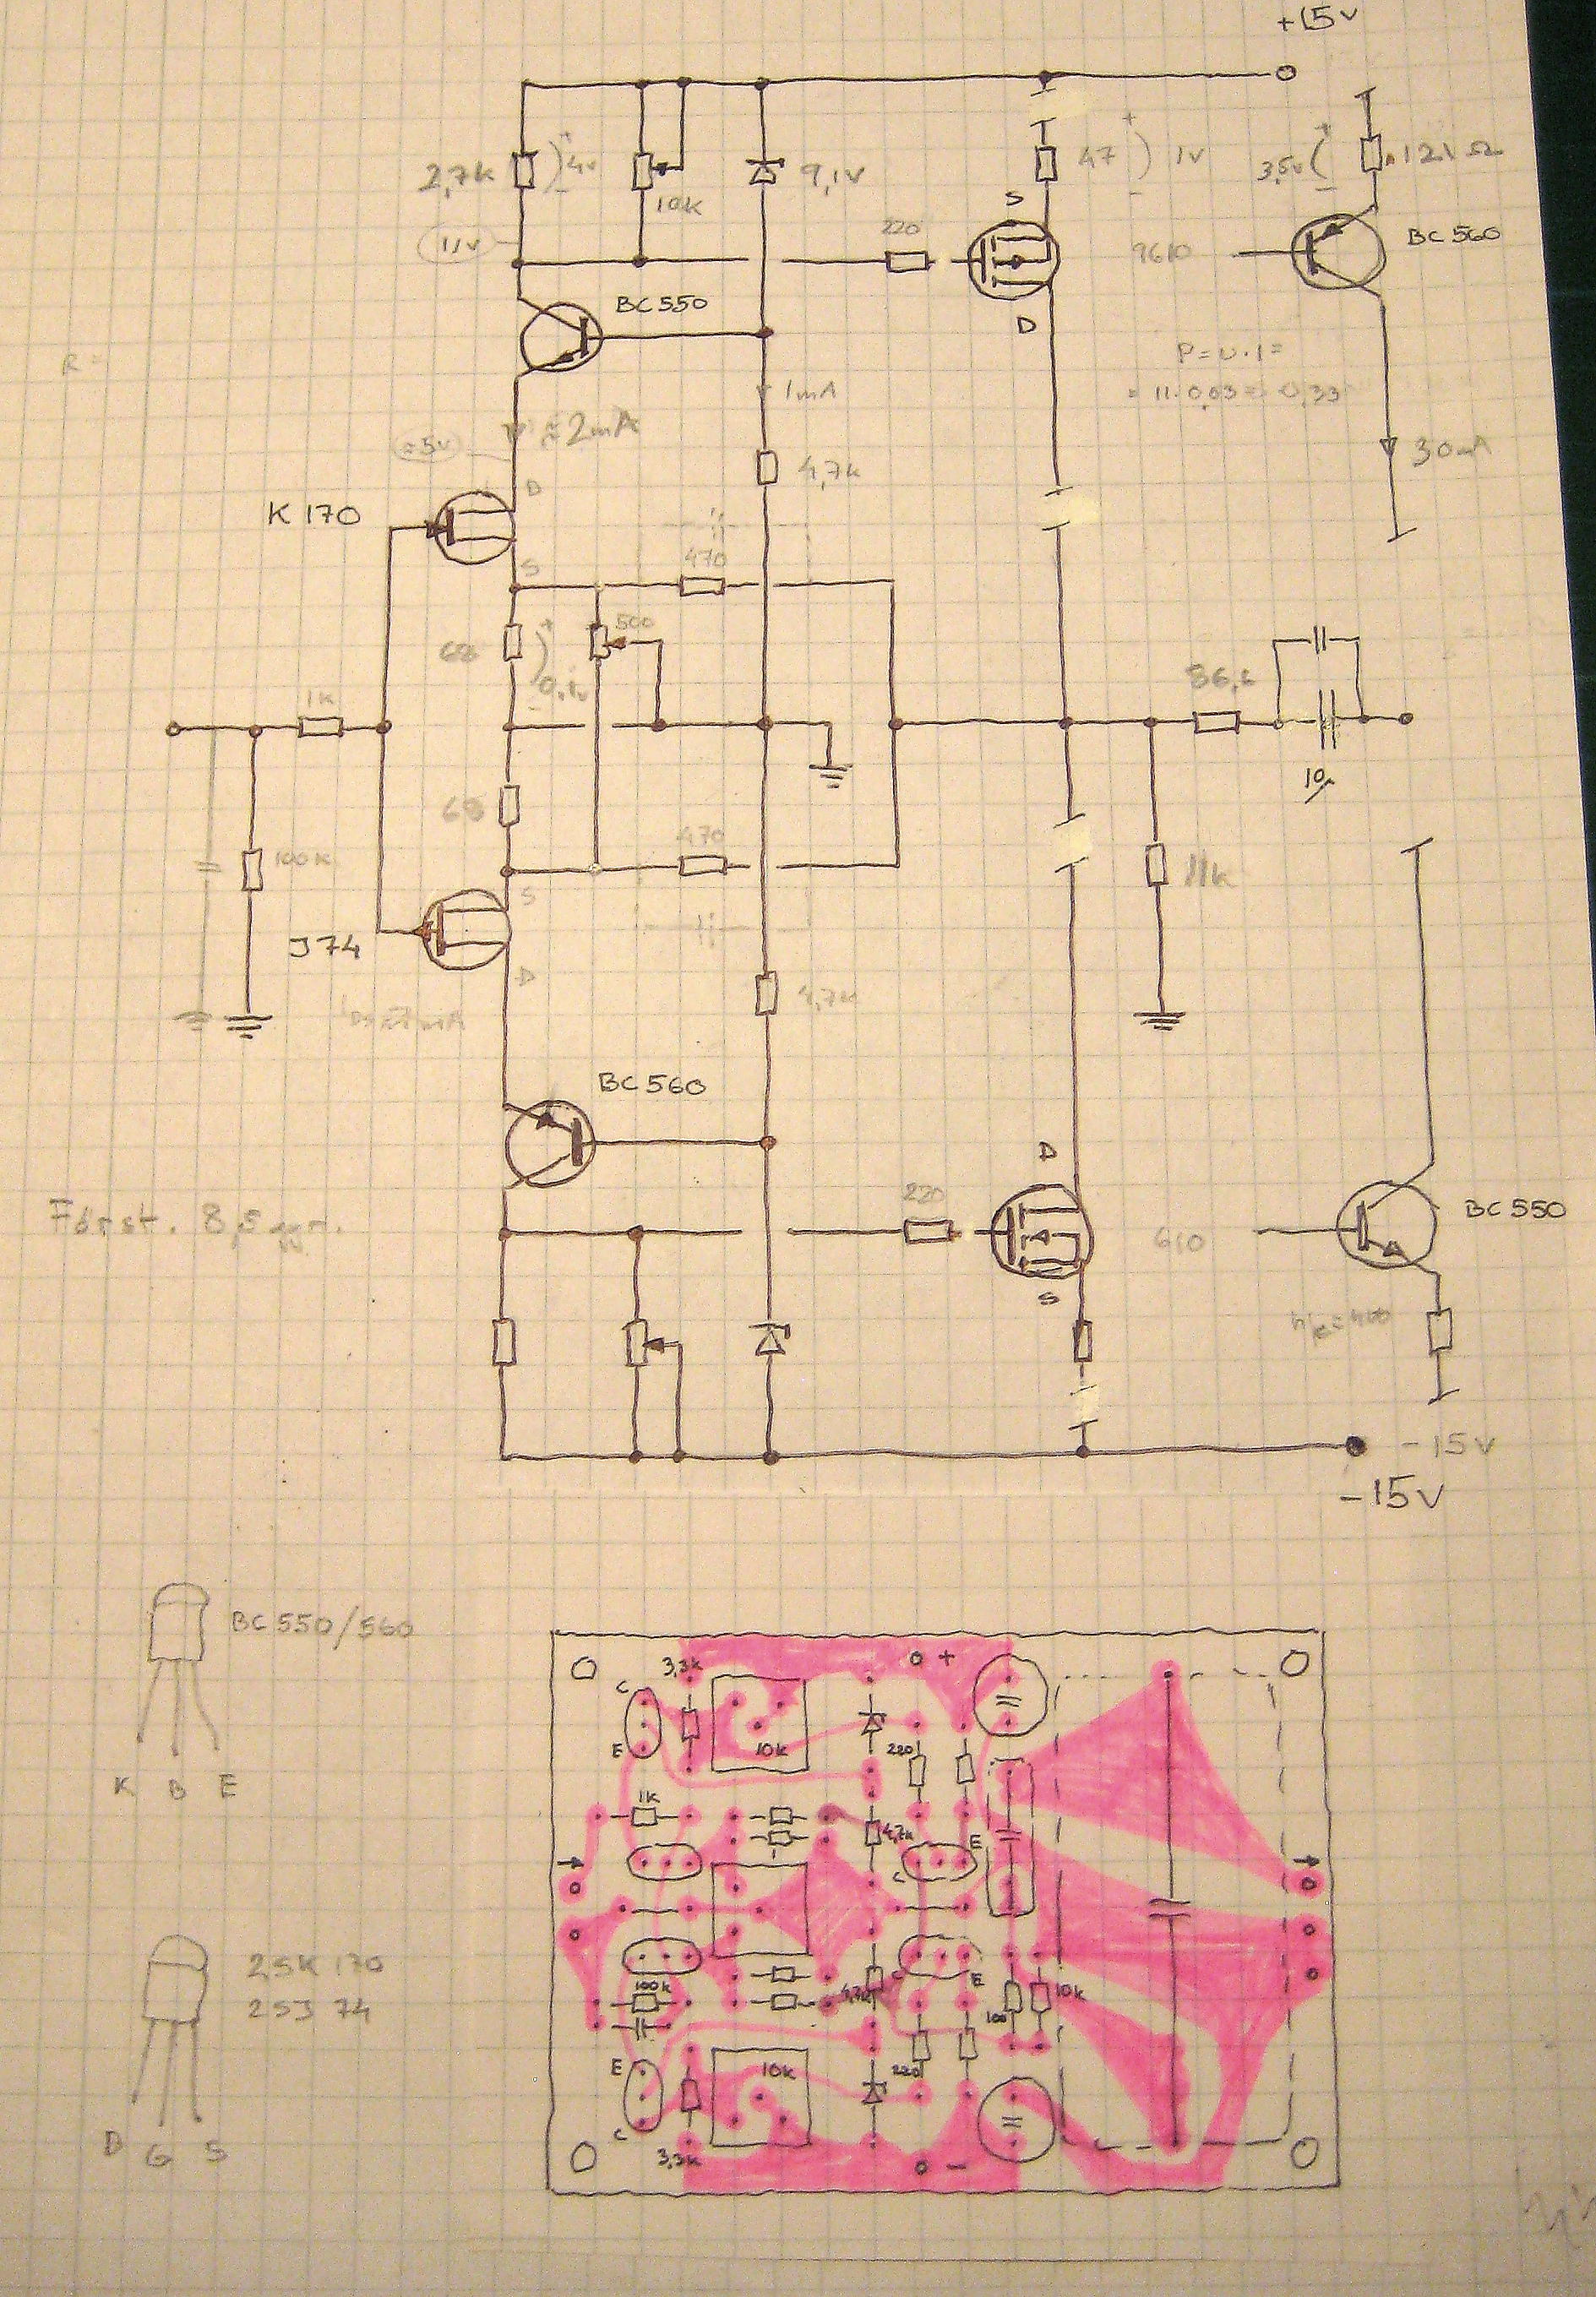 +15V
2,7K
4v
10K
9,1V
220
S
47
1V
3,5V
121 Ω
BC 560
11V
9610
BC 550
D
P = U · I =
= 11 · 0,03 = 0,33
R =
1mA
≈ 2mA
≈ 5V
30mA
4,7K
D
K 170
S
470
500
68
0,1v
1K
86,6
10µ
68
470
100K
11K
S
J74
D
4,7K
BC 560
D
Först. 8,5 ggr.
220
610
BC 550
S
hfe = 400
-15V
-15V
BC 550/560
K B E
2SK 170
2SJ 74
D G S
3,3K
+
C
E
10K
220
1K
4,7K
E
C
100K
4,7K
C
E
10K
100
E
10K
220
C
3,3K
-